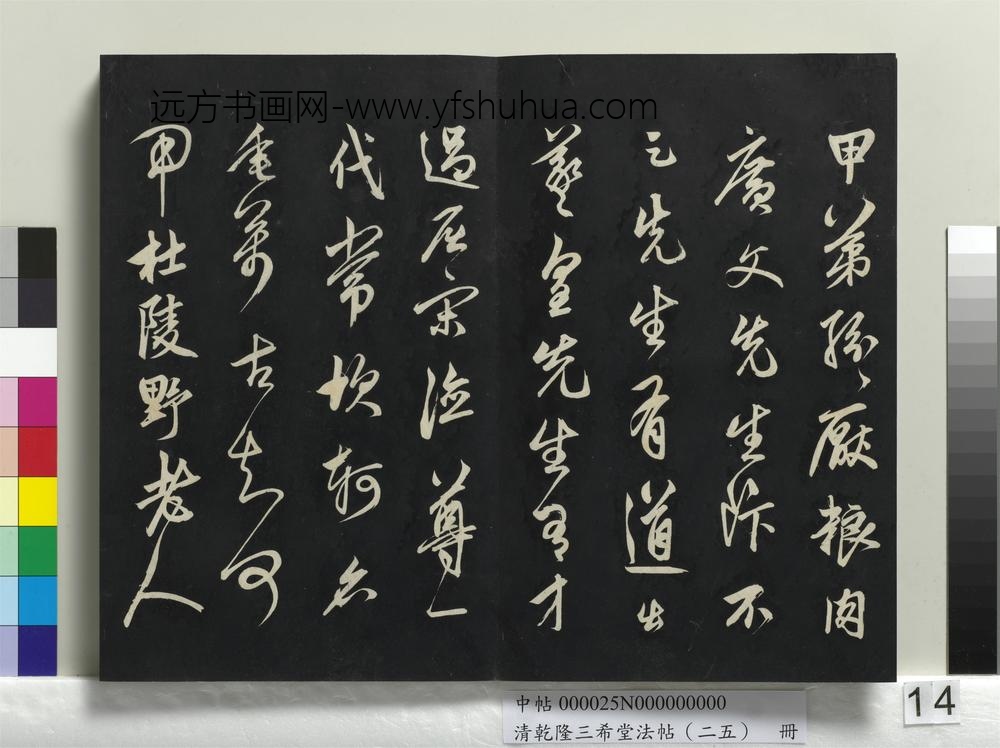 远方书画网-www.yfshuhua.com
甲第紛紛厭粮肉
廣文先生飰不
足先生有道出
羲皇先生有才
過屈宋德尊一
代常坎軻名
垂萬古知何
用杜陵野老人
中帖000025N000000000
清乾隆三希堂法帖（二五） 冊
14